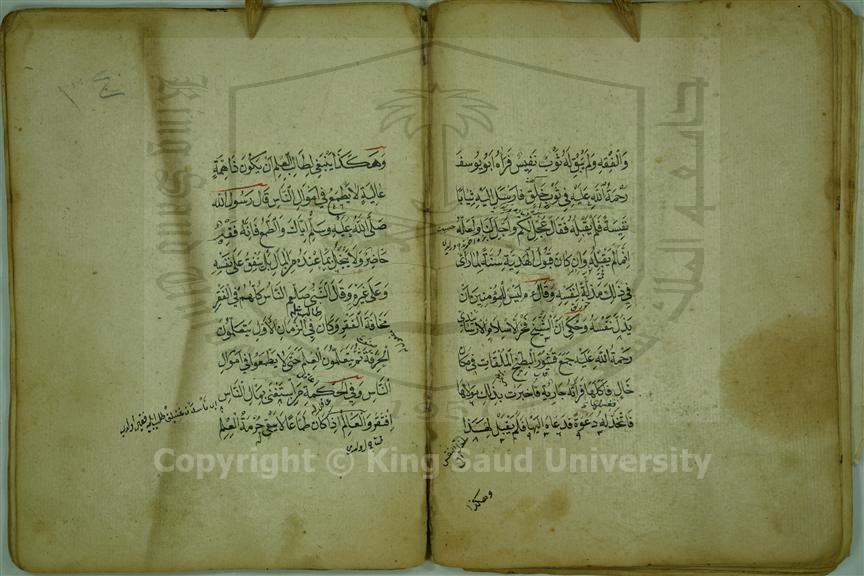 والفقه ولم يبق له ثوب نفيس فرآه ابو يوسف
رحمة الله عليه في ثوب خلق فارسل اليه ثيابا
نفيسة فلم يقبلها فقال عجل لكم واجل لنا ولعله
انما لم يقبله وان كان قبول الهدية سنة لما رأى
في ذلك مذلة لنفسه وقال ليس للمؤمنين ان
يذل نفسه وحكي ان الشيخ فخر الاسلام الارسابندي
رحمة الله عليه جمع قشور البطيخ الملقات في مكان
خال فاكلها فرأته جارية فاخبرت بذلك مولاها
فاتخذ له دعوة فدعاه اليها فلم يقبل لهذا
وهكذا
وهكذا ينبغي لطالب العلم ان يكون ذا همة
عالية لا يطمع في اموال الناس قال رسول الله
صلى الله عليه وسلم اياك والطمع فانه فقر
حاضر ولا يبخل بما عنده من المال بل ينفق على نفسه
وعلى غيره وقال النبي صلعم الناس كلهم في الفقر
مخافة الفقر وكان في الزمان الاول يتعلمون
الحرفة ثم يتعلمون العلم حتى لا يطمعوا في اموال
الناس وفي الحكمة من استغنى بمال الناس
افتقر والعالم اذا كان طماعا لا يبقى حرمة العلم
Copyright © King Saud University
1957